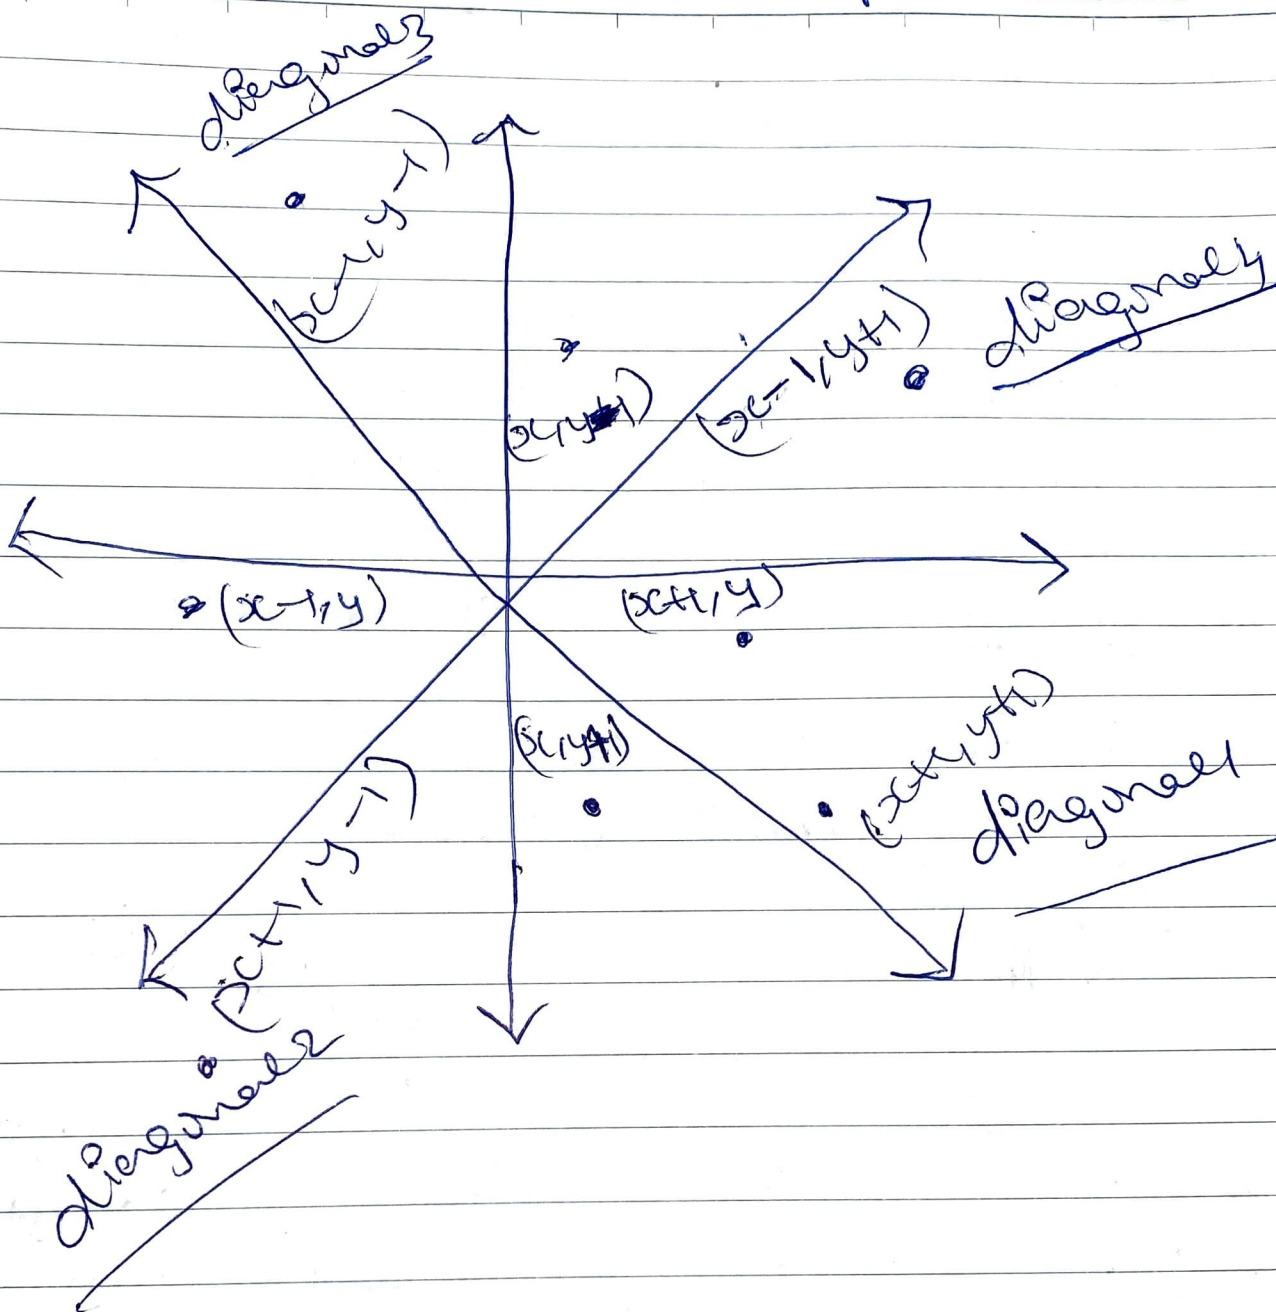 diagonal3
(x-1, y-1)
diagonal4
(x-1, y+1)
(x-1, y)
(x+1, y)
(x+1, y+1)
(x, y+1)
diagonal1
(x+1, y-1)
diagonal2